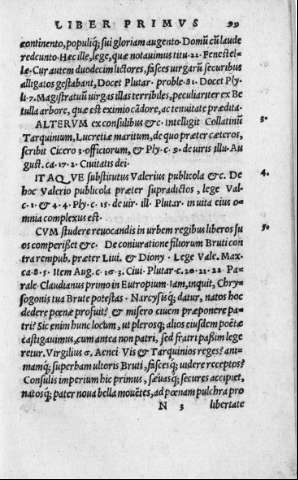 LIBER PRIMVS 99
continento, populiq; sui gloriam augento. Domū cū laude
redeunto. Hec ille, lege, quæ notauimus titu. 22. Fenestel-
læ. Cur autem duodecim lictores, fasces uirgarū securibus
alligatos gestabant, Docet Plutar. proble. 81. Docet Ply-
li. 7. Magistratuū uirgas illas terribiles, peculiariter ex Be
tulla arbore, quæ est eximio cādore, ac tenuitate prædita.
ALTERVM ex consulibus &c. intelligit Collatinū 3.
Tarquinium, Lucretiæ maritum, de quo præter cæteros,
scribit Cicero 3. officiorum, & Ply. c. 9. de uiris illu. Au
gust. ca. 17. 2. Ciuitatis dei.
ITAQVE substitutus Valerius publicola &c. De 4.
hoc Valerio publicola præter supradictos, lege Val-
c. 1. & 4. 4. Ply. c. 15. de uir. ill. Plutar. in uita eius o-
mnia complexus est.
CVM studere reuocandis in urbem regibus liberos su 50
os comperisset &c. De coniuratione filiorum Bruti con
tra rempub. præter Liui. & Diony. Lege Vale. Max.
ca. 8. 5. Item Aug. c. 10. 3. Ciui. Plutar. c. 20. 21. 22 Pa-
rale. Claudianus primo in Eutropium. Iam, inquit, Chry-
sogonis tua Brute potestas. Narcysisq; datur, natos hoc
dedere pœnæ profuit? & misero ciuem præponere pa-
tri? Sic enim hunc locum, ut plerosq; alios eiusdem poëtæ
castigauimus, cum antea non patri, sed fratri passim lege
retur. Virgilius 6. Aenei. Vis & Tarquinios reges? ani-
mamq; superbam ultoris Bruti, fascesq; uidere receptos?
Consulis imperium hic primus, sæuasq; secures accipiet,
natosq; pater noua bella mouētes, ad pœnam pulchra pro
N 3 libertate